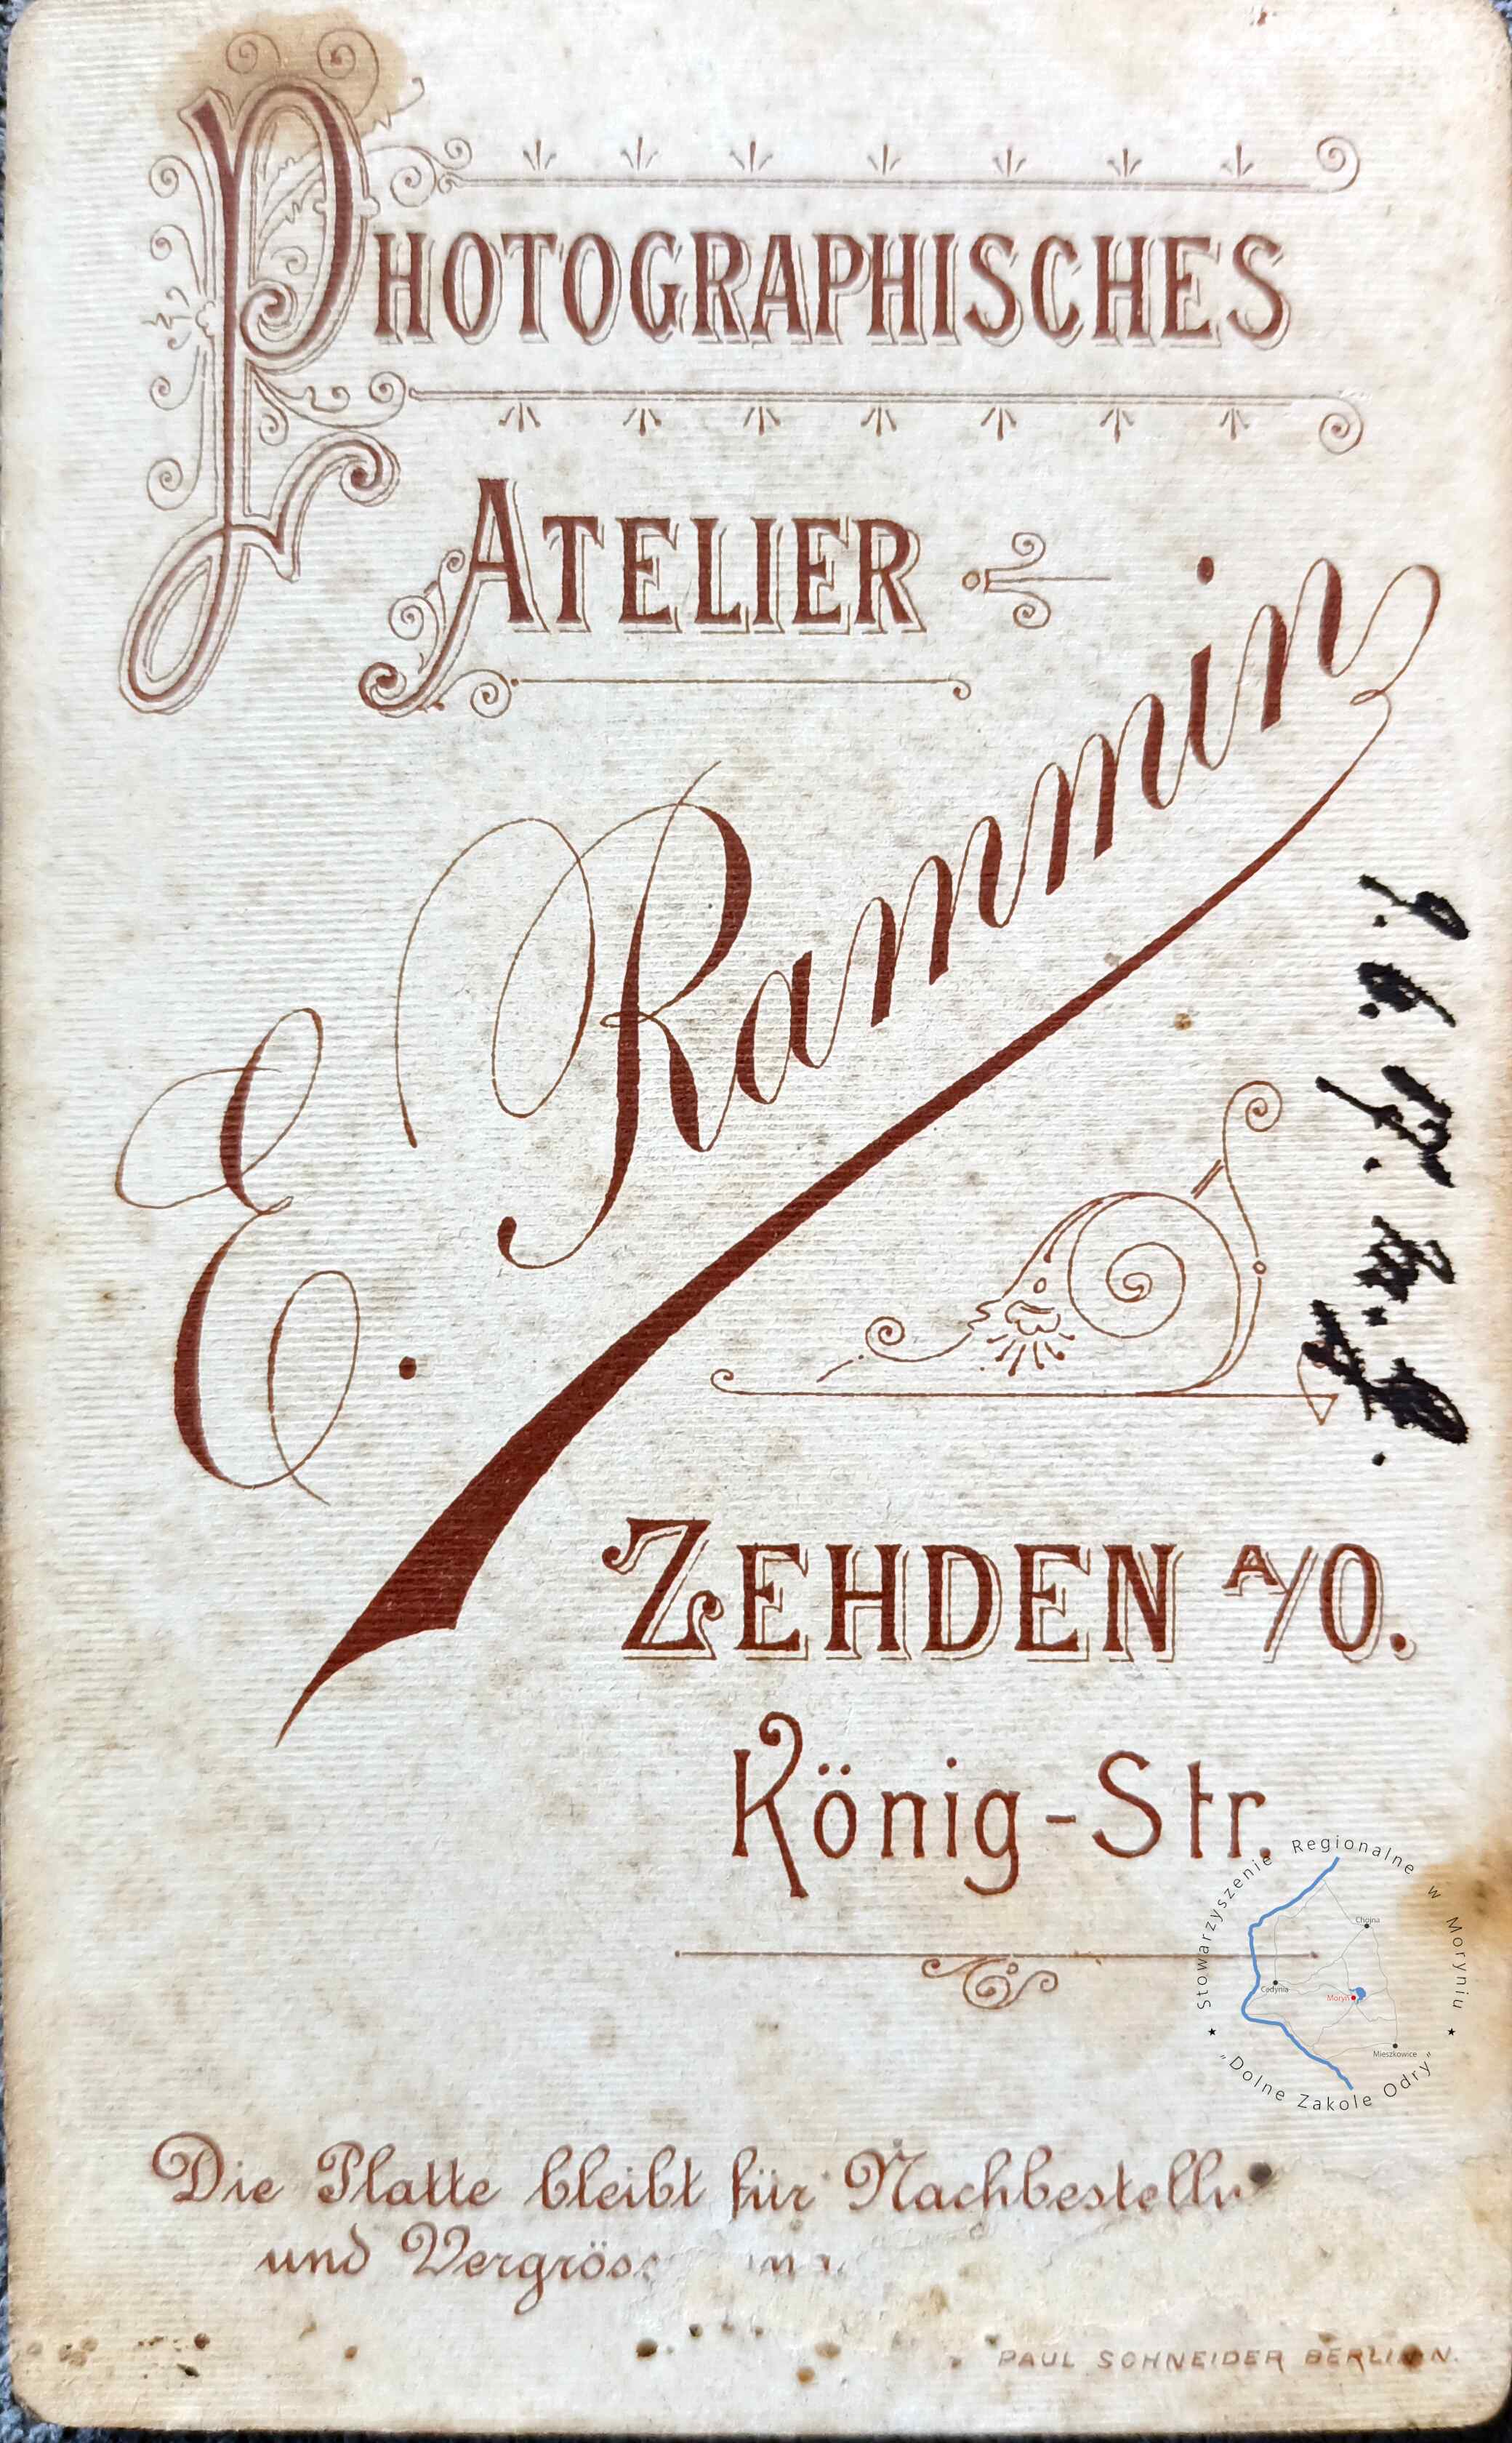 PHOTOGRAPHISCHES
ATELIER
E. Rammin
ZEHDEN A/O.
König-Str.
Stowarzyszenie Regionalne w Moryniu
Chojna
Cedynia
Moryń
Mieszkowice
"Dolne Zakole Odry"
Die Platte bleibt für
und
PAUL SCHNEIDER BERLIN N.